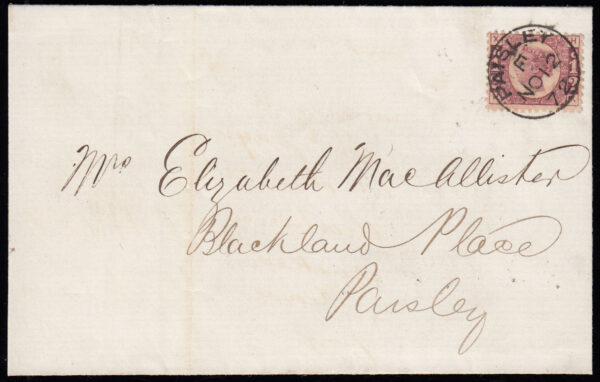 PAISLEY
E
NO 12
72
Mrs Elizabeth MacAllister
Blackland Place
Paisley